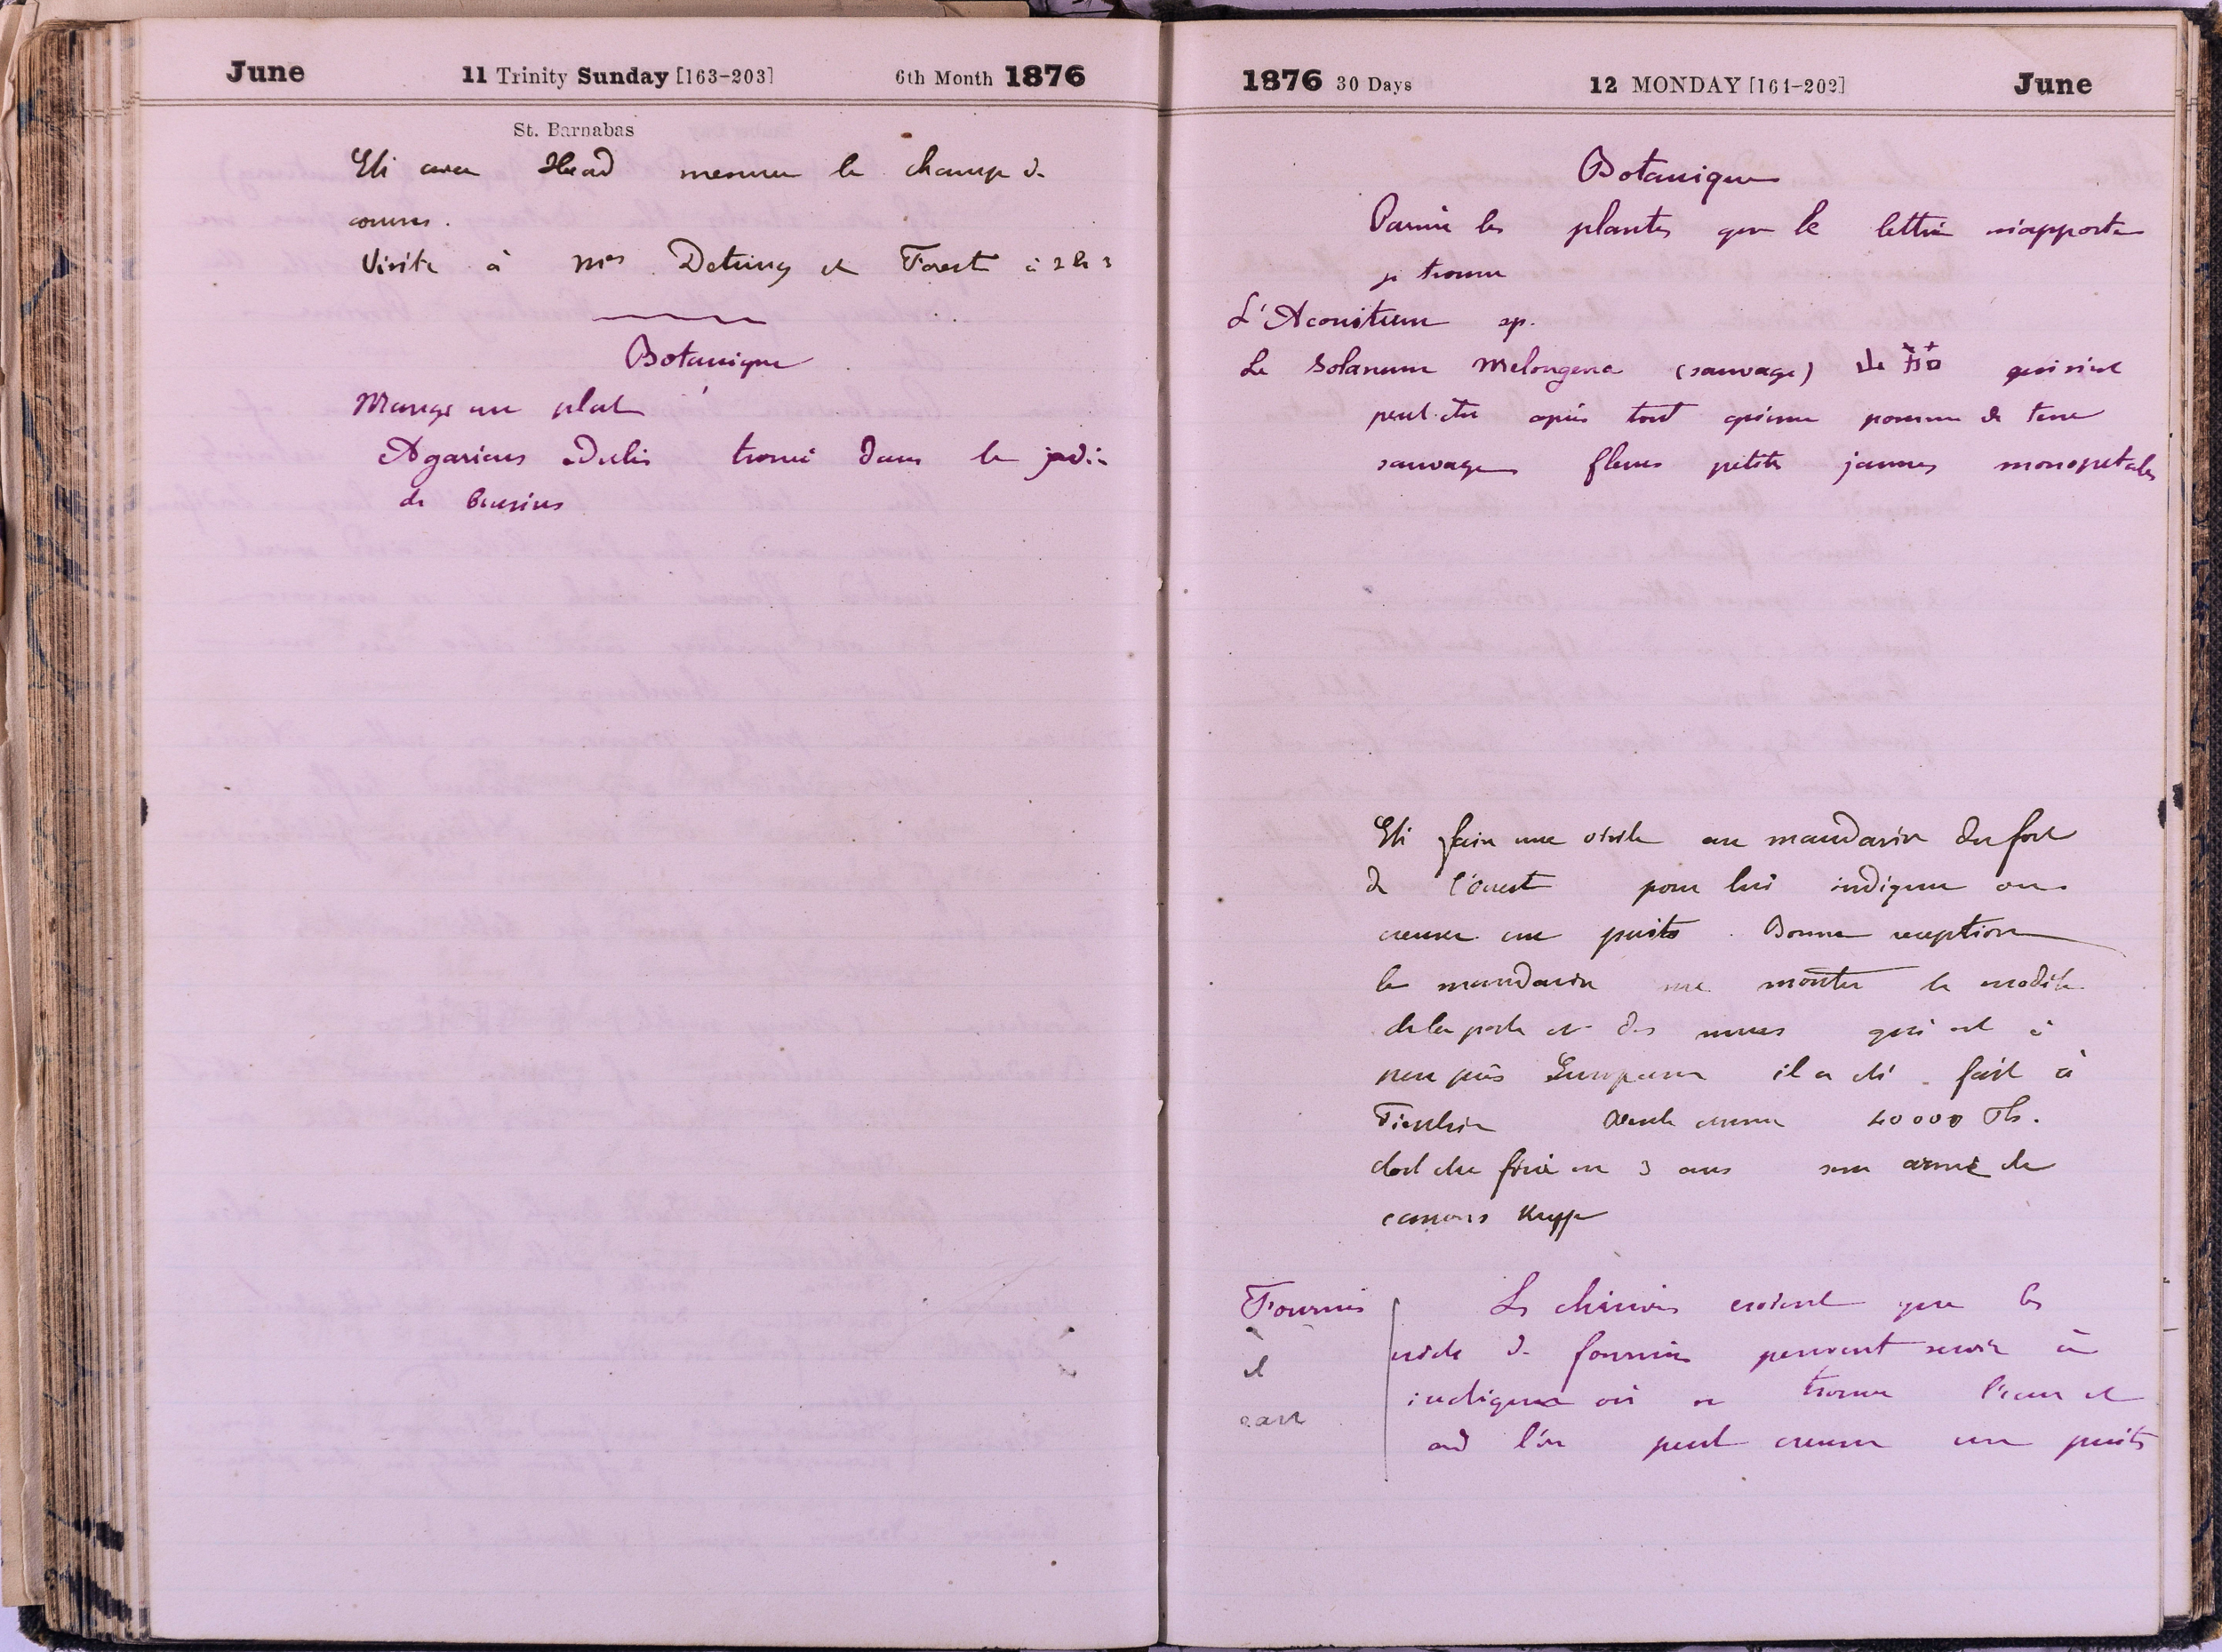 June 11 Trinity Sunday [163-203] 6th Month 1876
St. Barnabas
Eté avec Head mesurer le champ de
courses.
Visite à Mrs Detring et Forest à 2 h 3
Botanique
Mangé un plat
Agaricus edulis trouvé dans le jardin
de
1876 30 Days 12 MONDAY [164-202] June
Botanique
Parmi les plantes que le lettré m'apporte
je trouve
L'Aconitum sp.
Le Solanum Melongena (sauvage) qui n'est
peut-être après tout qu'une pomme de terre
sauvage fleurs petites jaunes monopetales
Eté faire une visite au mandarin du fort
de l'ouest pour lui indiquer où
creuser un puits. Bonne reception
le mandarin me montre le modèle
de la porte et des murs qui est à
peu près Européen il a été fait à
Tientsin 40000 Tls.
doit être fini en 3 ans sera armé de
canons Krupp
Fourmis
et
eau
Les chinois croient que les
nids de fourmis peuvent servir à
indiquer où se trouve l'eau et
où l'on peut creuser un puits